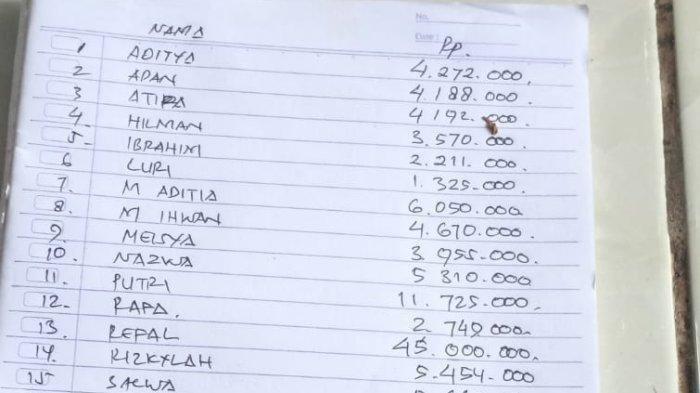 No.
NAMA Date: Rp.
1 ADITYA 4.272.000,
2 APAN 4.188.000
3 ATIPA 4.192.000
4. HILMAN 3.570.000
5. IBRAHIM 2.211.000
6 LURI 1.325.000
7. M ADITIA 6.050.000
8. M IHWAN 4.670.000
9. MEISYA 3.955.000
10. NAZWA 5 310.000
11. PUTRI 11.725.000
12. RAPA. 2.749.000
13. REPAL 45.000.000
14. RIZKYLAH 5.454.000
15 SALWA